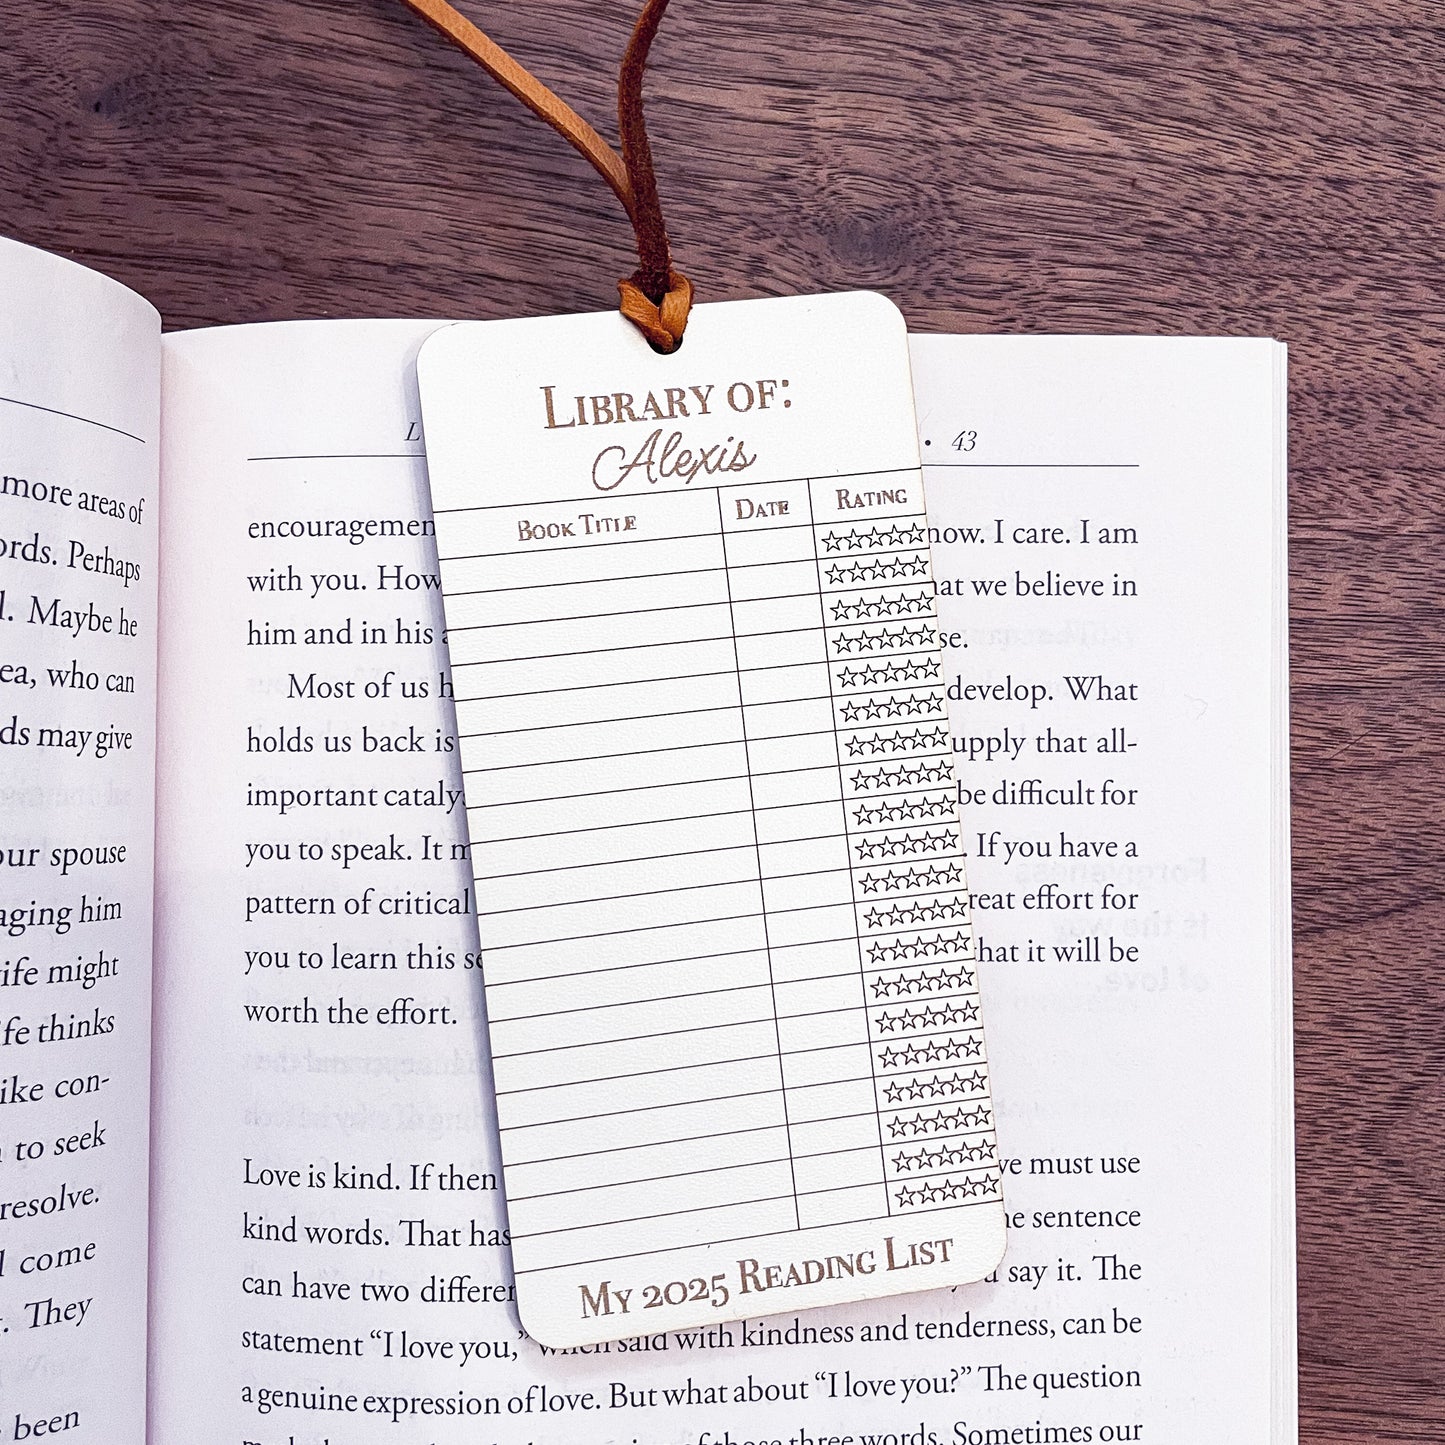 LIBRARY OF:
Alexis
BOOK TITLE DATE RATING
MY 2025 READING LIST
more areas of
ords. Perhaps
l. Maybe he
ea, who can
ds may give
our spouse
aging him
ife might
fe thinks
ike con-
to seek
resolve.
come
. They
been
• 43
encouragemen now. I care. I am
with you. How hat we believe in
him and in his se.
Most of us h develop. What
holds us back is upply that all-
important cataly be difficult for
you to speak. It m . If you have a
pattern of critical reat effort for
you to learn this se that it will be
worth the effort.
Love is kind. If then we must use
kind words. That has he sentence
can have two differen say it. The
statement “I love you,” when said with kindness and tenderness, can be
a genuine expression of love. But what about “I love you?” The question
of those three words. Sometimes our